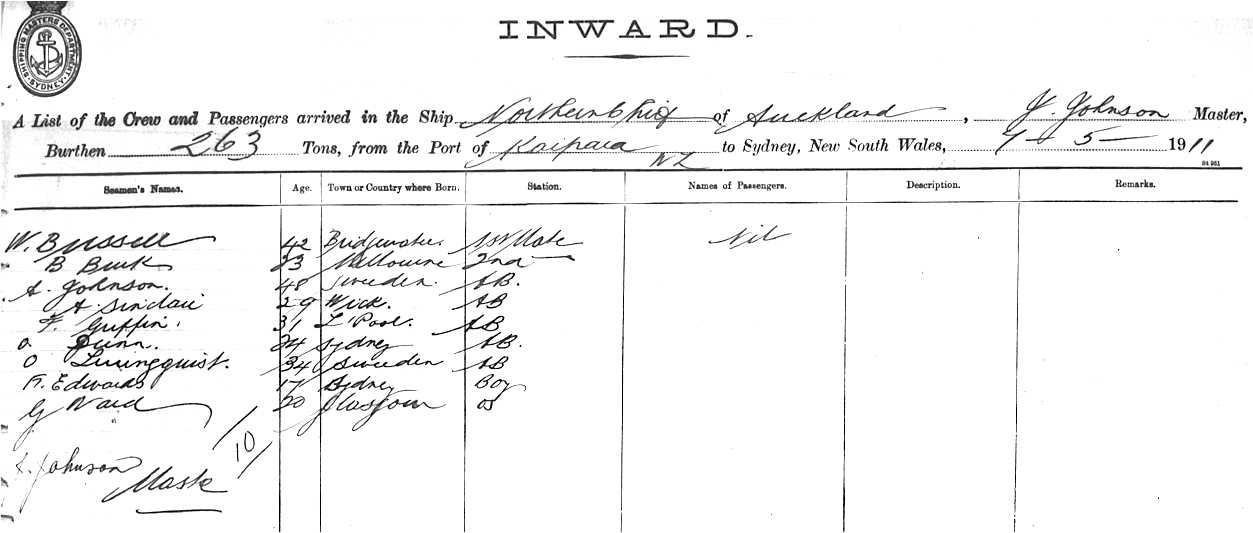 SHIPPING MASTERS DEPARTMENT SYDNEY
INWARD.
A List of the Crew and Passengers arrived in the Ship Northern Chief of Auckland, J. Johnson Master,
Burthen 263 Tons, from the Port of Kaipara NZ to Sydney, New South Wales, 7 5 1911
Seamen's Names. Age. Town or Country where Born. Station. Names of Passengers. Description. Remarks.
W. Bussell 42 Bridgewater 1st Mate Nil
B Burk 23 Melbourne 2nd
A. Johnson. 48 Sweeden. AB.
A. Sinclair 29 Wick. AB
F. Griffin. 31 L'Pool. AB
O Dunn. 24 Sydney AB.
O Livingquist. 34 Sweeden AB
Edwards 17 Sydney Boy
G Ward 20 Glasgow OS
10
Johnson
Master